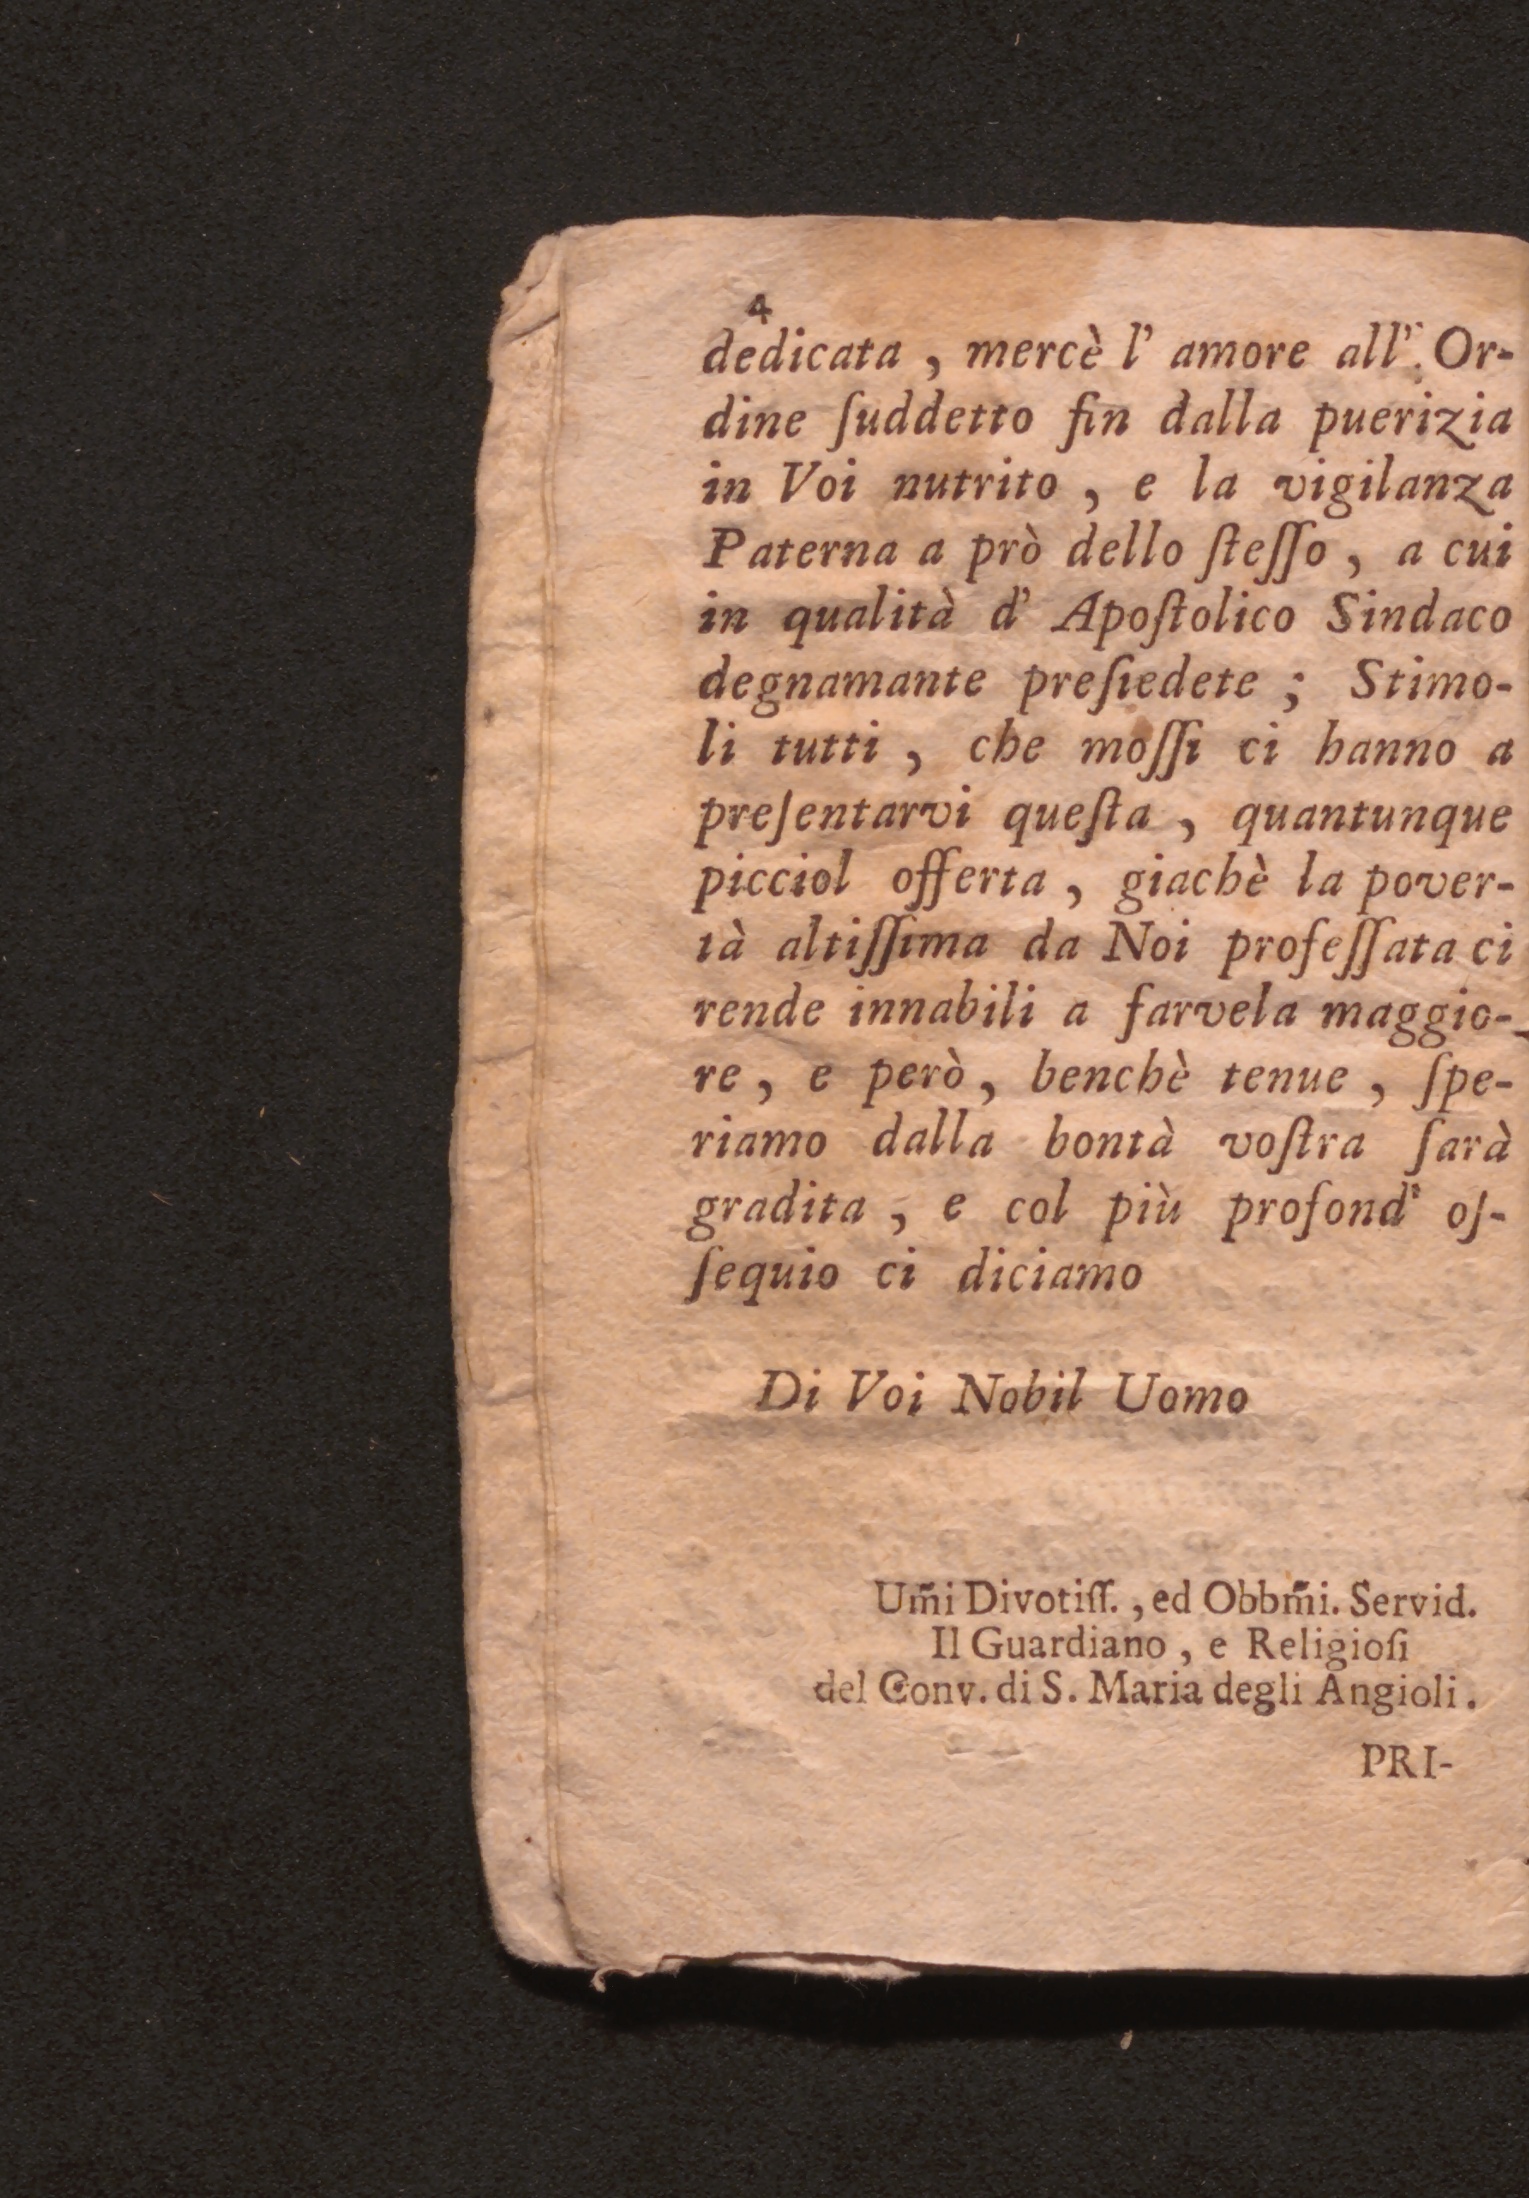 4
dedicata , mercè l' amore all' Or-
dine ſuddetto fin dalla puerizia
in Voi nutrito , e la vigilanza
Paterna a prò dello ſteſſo , a cui
in qualità d' Apoſtolico Sindaco
degnamante preſiedete ; Stimo-
li tutti , che moſſi ci hanno a
preſentarvi queſta , quantunque
picciol offerta , giachè la pover-
tà altiſſima da Noi profeſſata ci
rende innabili a farvela maggio-
re , e però , benchè tenue , ſpe-
riamo dalla bontà voſtra ſarà
gradita , e col più profond' oſ-
ſequio ci diciamo
Di Voi Nobil Uomo
Um̃i Divotiſſ. , ed Obbm̃i. Servid.
Il Guardiano , e Religioſi
del Conv. di S. Maria degli Angioli .
PRI-